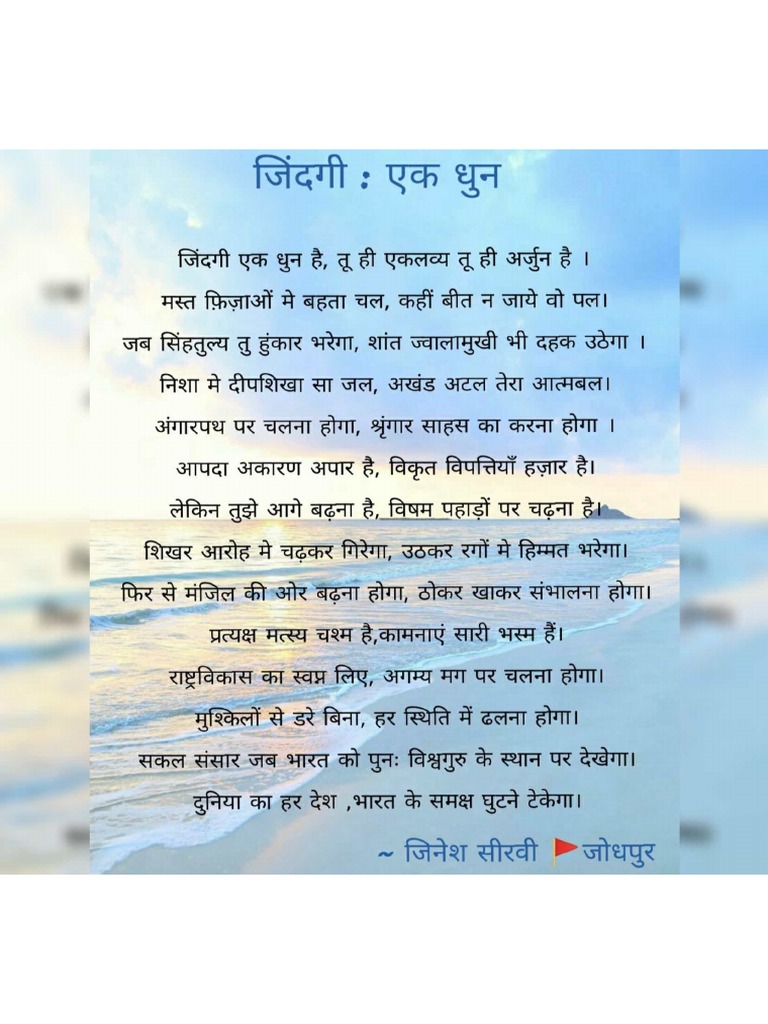 जिंदगी : एक धुन
जिंदगी एक धुन है, तू ही एकलव्य तू ही अर्जुन है ।
मस्त फ़िज़ाओं मे बहता चल, कहीं बीत न जाये वो पल।
जब सिंहतुल्य तु हुंकार भरेगा, शांत ज्वालामुखी भी दहक उठेगा ।
निशा मे दीपशिखा सा जल, अखंड अटल तेरा आत्मबल।
अंगारपथ पर चलना होगा, श्रृंगार साहस का करना होगा ।
आपदा अकारण अपार है, विकृत विपत्तियाँ हज़ार है।
लेकिन तुझे आगे बढ़ना है, विषम पहाड़ों पर चढ़ना है।
शिखर आरोह मे चढ़कर गिरेगा, उठकर रगों मे हिम्मत भरेगा।
फिर से मंजिल की ओर बढ़ना होगा, ठोकर खाकर संभालना होगा।
प्रत्यक्ष मत्स्य चश्म है,कामनाएं सारी भस्म हैं।
राष्ट्रविकास का स्वप्न लिए, अगम्य मग पर चलना होगा।
मुश्किलों से डरे बिना, हर स्थिति में ढलना होगा।
सकल संसार जब भारत को पुनः विश्वगुरु के स्थान पर देखेगा।
दुनिया का हर देश ,भारत के समक्ष घुटने टेकेगा।
~ जिनेश सीरवी 🚩जोधपुर